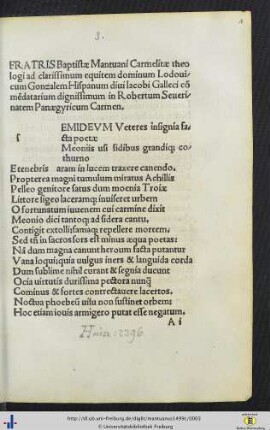 3.
FRATRIS Baptistæ Mantuani Carmelitæ theo
logi ad clarissimum equitem dominum Lodoui
cum Gonzalem Hispanum diui Iacobi Galleci cō
mēdatarium dignissimum in Robertum Seueri
natem Panægyricum Carmen.
EMIDEVM Veteres insignia fa
s cta poetæ
Meoniis usi fidibus grandiq; co
thurno
E tenebris aram in lucem traxere canendo.
Propterea magni tumulum miratus Achillis
Pelleo genitore satus dum moenia Troiæ
Littore sigeo laceramq; inuiseret urbem
O fortunatum iuuenem cui carmine dixit
Meonio dici tantoq; ad sidera cantu.
Contigit extollisamaq; repellere mortem.
Sed tn̄ in sacros fors est minus æqua poetas
Nā dum magna canunt heroum facta putantur
Vana loqui; quia uulgus iners & languida corda
Dum sublime nihil curant & segnia ducunt
Ocia uirtutis durissima pectora nunq̄
Cominus & fortes contrectauere lacertos.
Noctua phoebeū uisu non sustinet orbem:
Hoc etiam iouis armigero putat esse negatum.
A i
Hain: 2396
http://dl.ub.uni-freiburg.de/diglit/mantuanus1499c/0003
© Universitätsbibliothek Freiburg